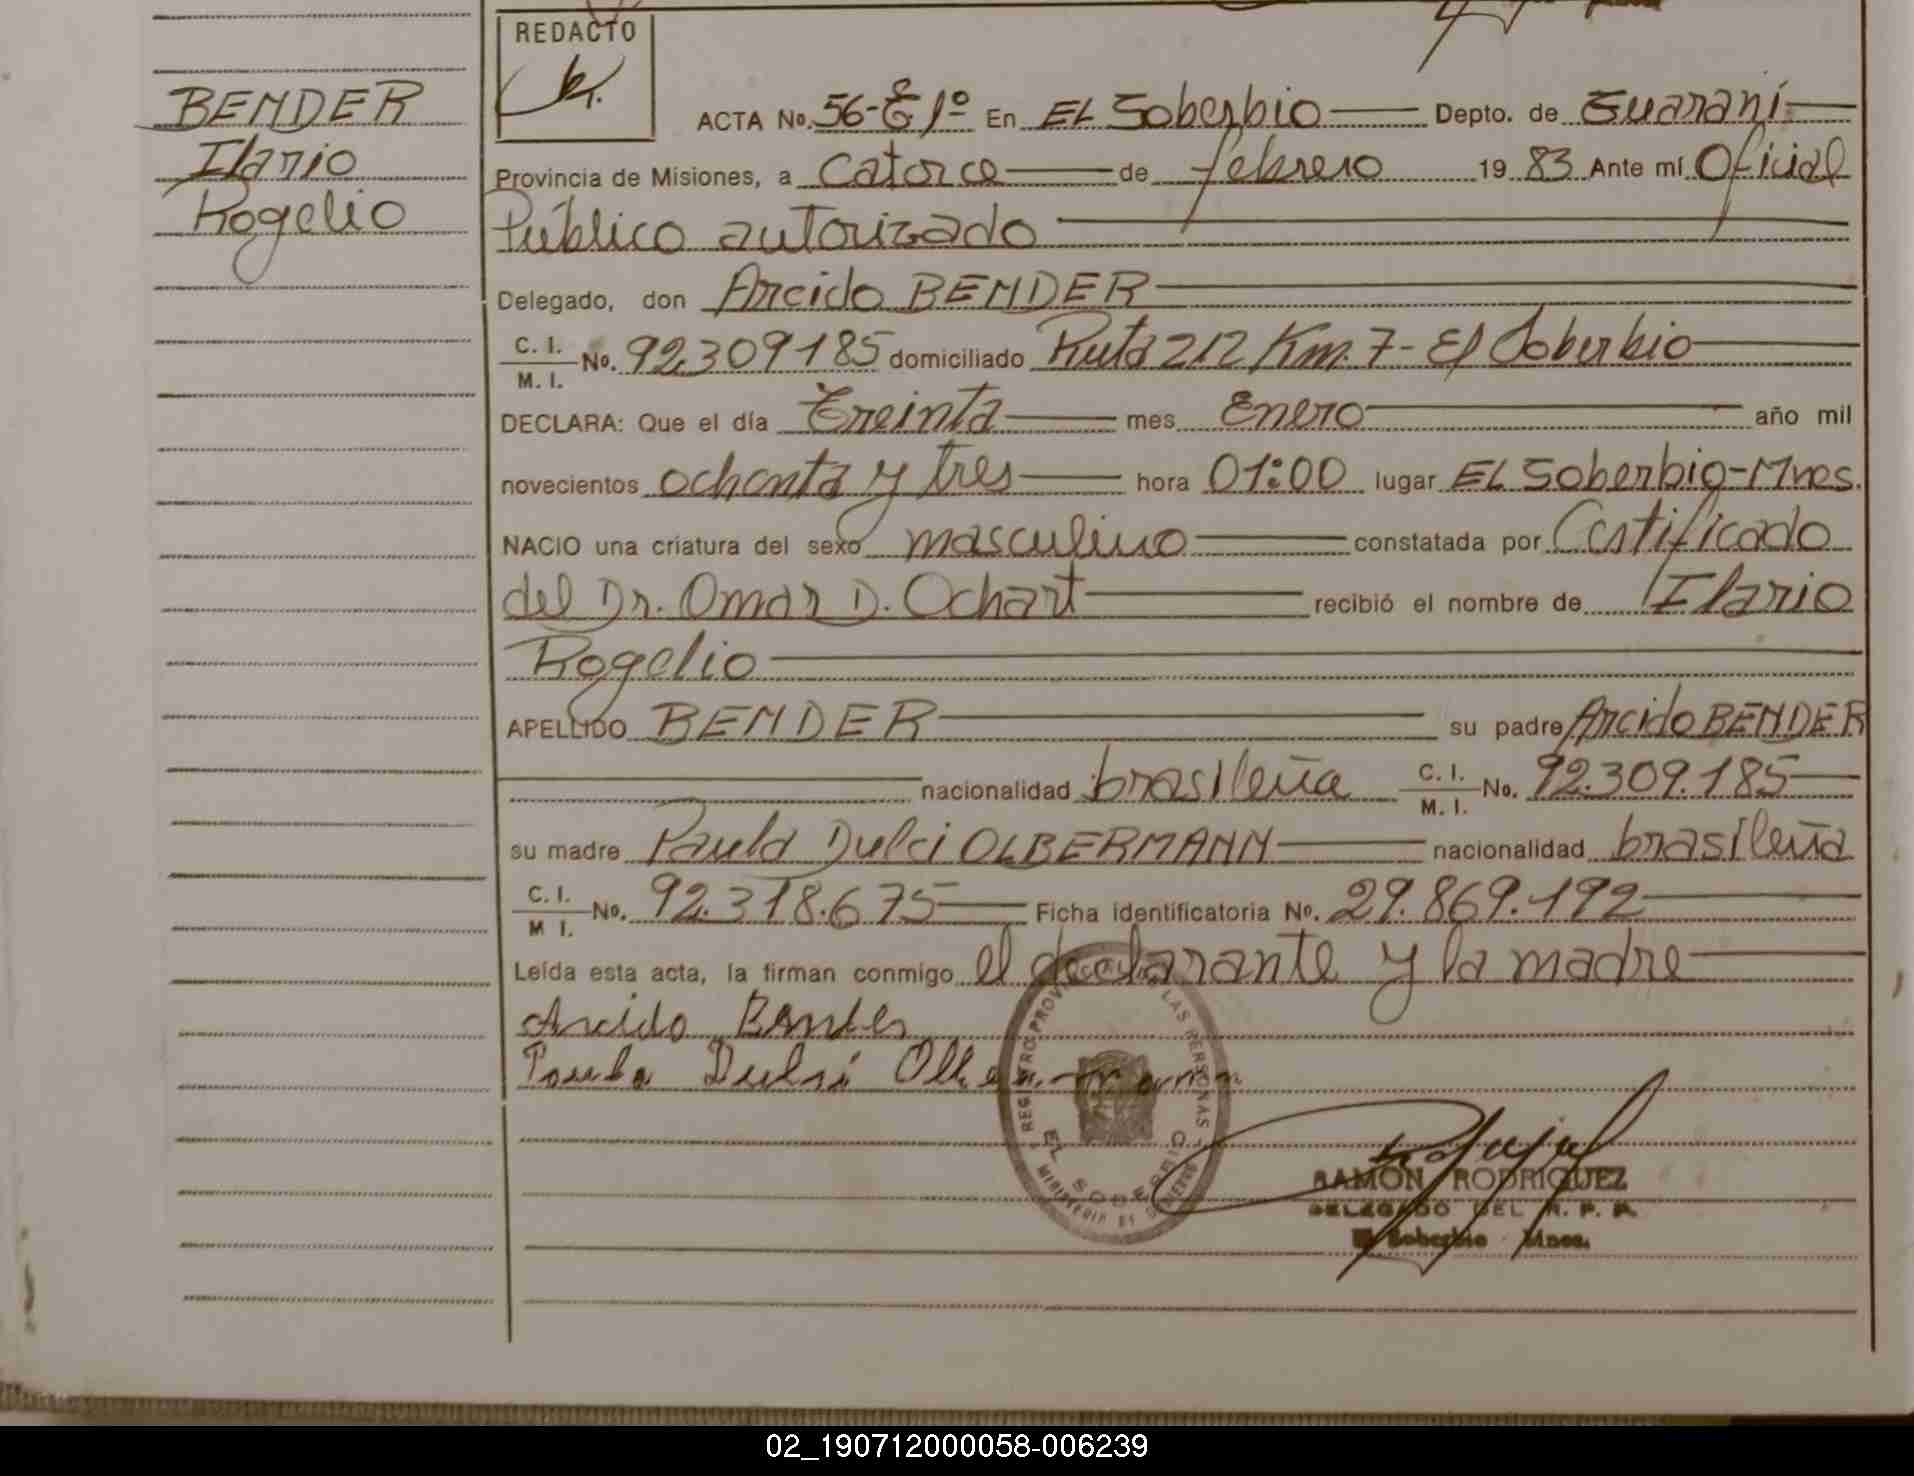 BENDER
Ilario
Rogelio
REDACTO
ACTA No. 56-E 1º En EL Soberbio Depto. de Guaraní
Provincia de Misiones, a catorce de febrero 1983 Ante mí Oficial
Público autorizado
Delegado, don Arcido BENDER
C. I.
M. I. No. 92.309185 domiciliado Ruta 212 Km. 7 - El Soberbio
DECLARA: Que el día Treinta mes Enero año mil
novecientos ochenta y tres hora 01:00 lugar EL Soberbio-Mnes.
NACIO una criatura del sexo masculino constatada por Certificado
del Dr. Omar D. Ochart recibió el nombre de Ilario
Rogelio
APELLIDO BENDER su padre Arcido BENDER
nacionalidad brasileña C. I. M. I. No. 92.309.185
su madre Paula Dulci OLBERMANN nacionalidad brasileña
C. I. M I. No. 92.318.675 Ficha identificatoria No. 29.869.192
Leída esta acta, la firman conmigo el declarante y la madre
Arcido Bender
Paula Dulsi Olbermann
REGISTRO PROVINCIAL DE LAS PERSONAS
EL SOBERBIO
MINISTERIO DE GOBIERNO
RAMON RODRIGUEZ
DELEGADO DEL R. P. P.
El Soberbio Mnes.
02_190712000058-006239